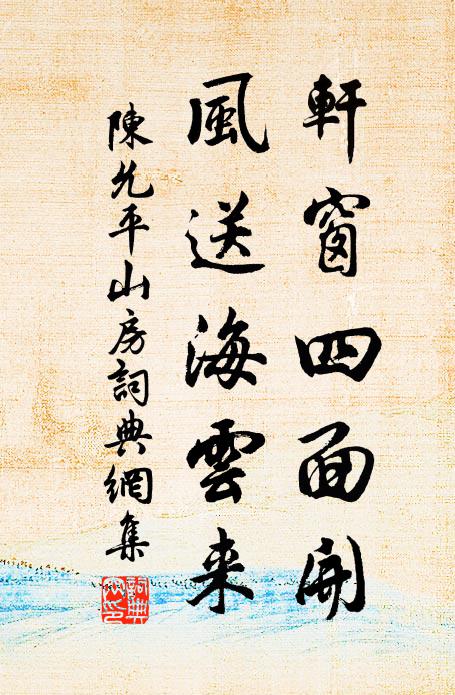 軒窗四面開
風送海雲来
陳允平山房詞典網集
詞典